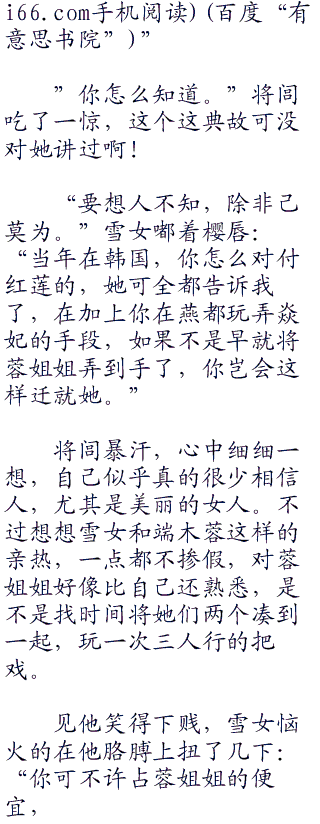 i66.com手机阅读）(百度“有
意思书院”)”
”你怎么知道。”将闾
吃了一惊，这个这典故可没
对她讲过啊！
“要想人不知，除非己
莫为。”雪女嘟着樱唇：
“当年在韩国，你怎么对付
红莲的，她可全都告诉我
了，在加上你在燕都玩弄焱
妃的手段，如果不是早就将
蓉姐姐弄到手了，你岂会这
样迁就她。”
将闾暴汗，心中细细一
想，自己似乎真的很少相信
人，尤其是美丽的女人。不
过想想雪女和端木蓉这样的
亲热，一点都不掺假，对蓉
姐姐好像比自己还熟悉，是
不是找时间将她们两个凑到
一起，玩一次三人行的把
戏。
见他笑得下贱，雪女恼
火的在他胳膊上扭了几下：
“你可不许占蓉姐姐的便
宜，